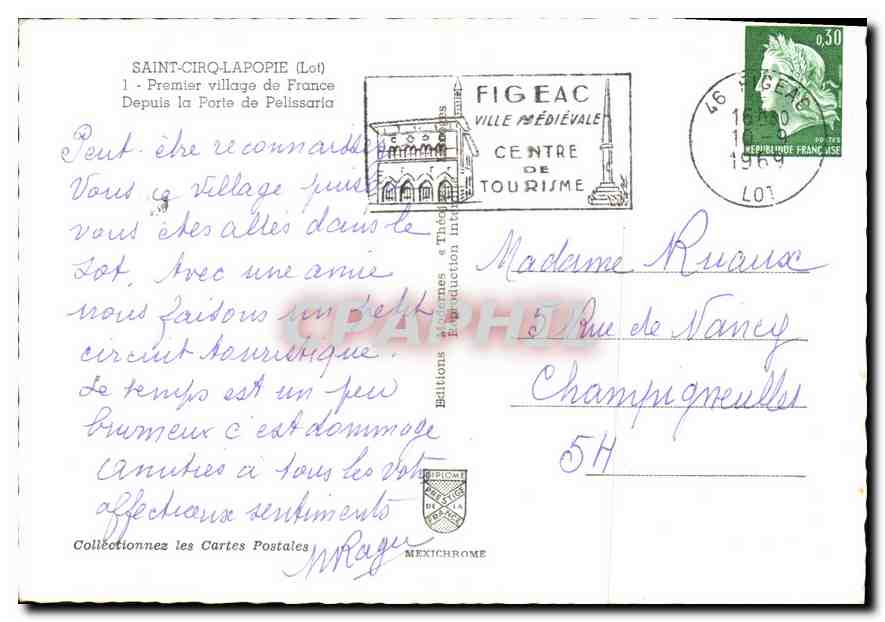 SAINT-CIRQ-LAPOPIE (Lot)
1 - Premier village de France
Depuis la Porte de Pelissaria
Peut-être reconnaissez
Vous ce village puisque
vous êtes allés dans le
Lot. Avec une amie
nous faisons un petit
circuit touristique.
Le temps est un peu
brumeux c'est dommage
Amitiés à tous les votres
affectueux sentiments
M Rague
Collectionnez les Cartes Postales
Editions Modernes « Théo
Reproduction inter
DIPLOME
PRESTIGE
DE LA
FRANCE
MEXICHROME
FIGEAC
VILLE MÉDIÉVALE
CENTRE
DE
TOURISME
46 FIGEAC
16H30
10-9
1969
LOT
0,30
POSTES
REPUBLIQUE FRANÇAISE
Madame Ruaux
5 Rue de Nancy
Champigneulles
54
CPAPHIL